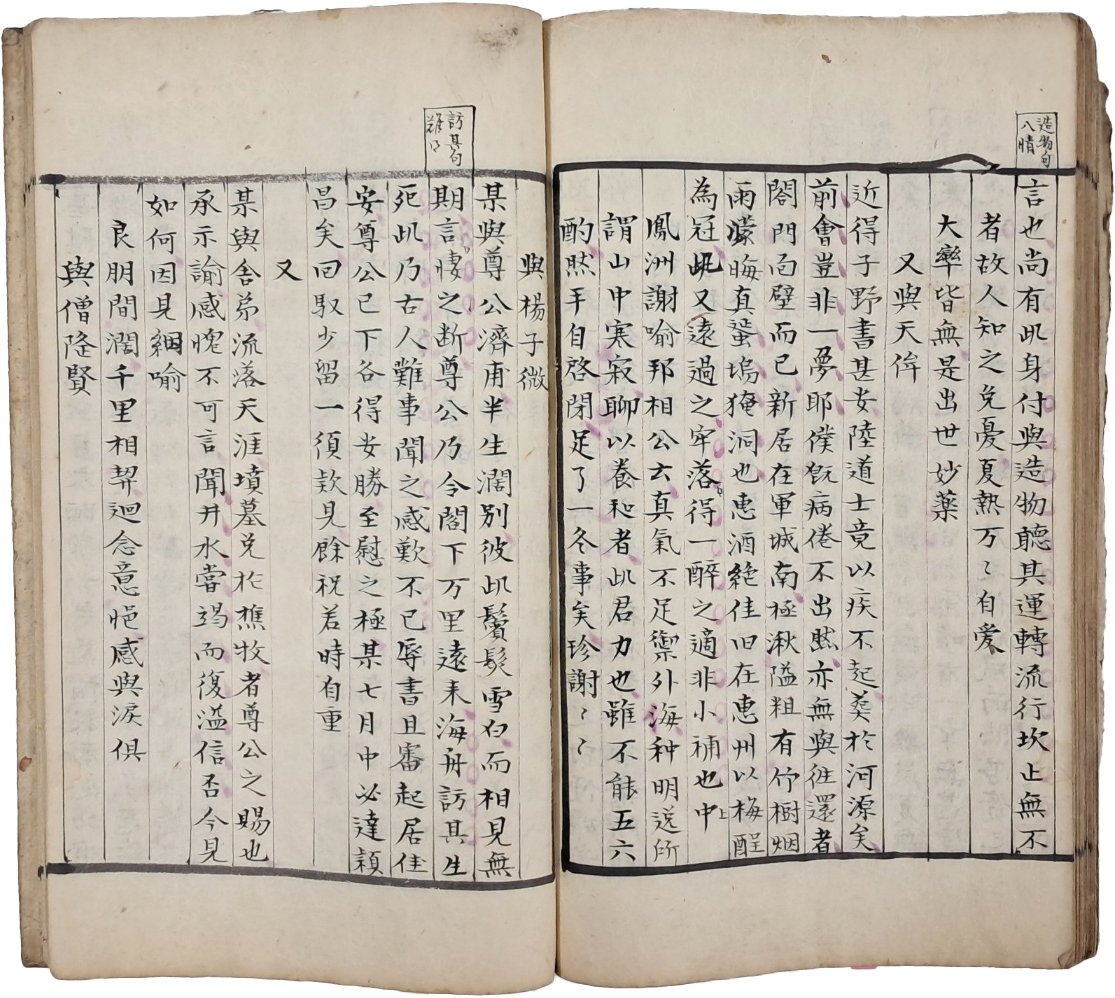 造物句
八情
言也尚有此身付與造物聽其運轉流行坎止無不
者故人知之免憂夏熱万〻自愛
大率皆無是出世妙薬
又與天侔
近得子野書甚安陸道士竟以疾不起葬於河源矣
前會豈非一夢耶僕旣病倦不出然亦無與徃還者
閤門面壁而已新居在軍城南極湫隘粗有竹樹烟
雨濛晦真蜑塢獠洞也惠酒絶佳旧在惠州以梅醖
為冠此又遠過之牢落得一醉之適非小補也中上
鳳洲謝喻邦相公云真氣不足禦外海种明送所
謂山中寒寂聊以養和者此君力也雖不能五六
酌然手自啓閉足了一冬事矣珍謝〻〻
與楊子微
訪其句
某與尊公濟甫半生濶别彼此鬢髮雪白而相見無
期言悽之断尊公乃令閣下万里遠来海舟訪其生
死此乃古人難事聞之感歎不已辱書且審起居佳
安尊公已下各得安勝至慰之極某七月中必達頴
昌矣回馭少留一須欵見餘祝若時自重
又
某與舍弟流落天涯墳墓免於樵牧者尊公之賜也
承示諭感愧不可言聞井水嘗竭而復溢信否今見
如何因見絪喻
良朋間濶千里相契迴念意悒感與淚俱
與僧隆賢